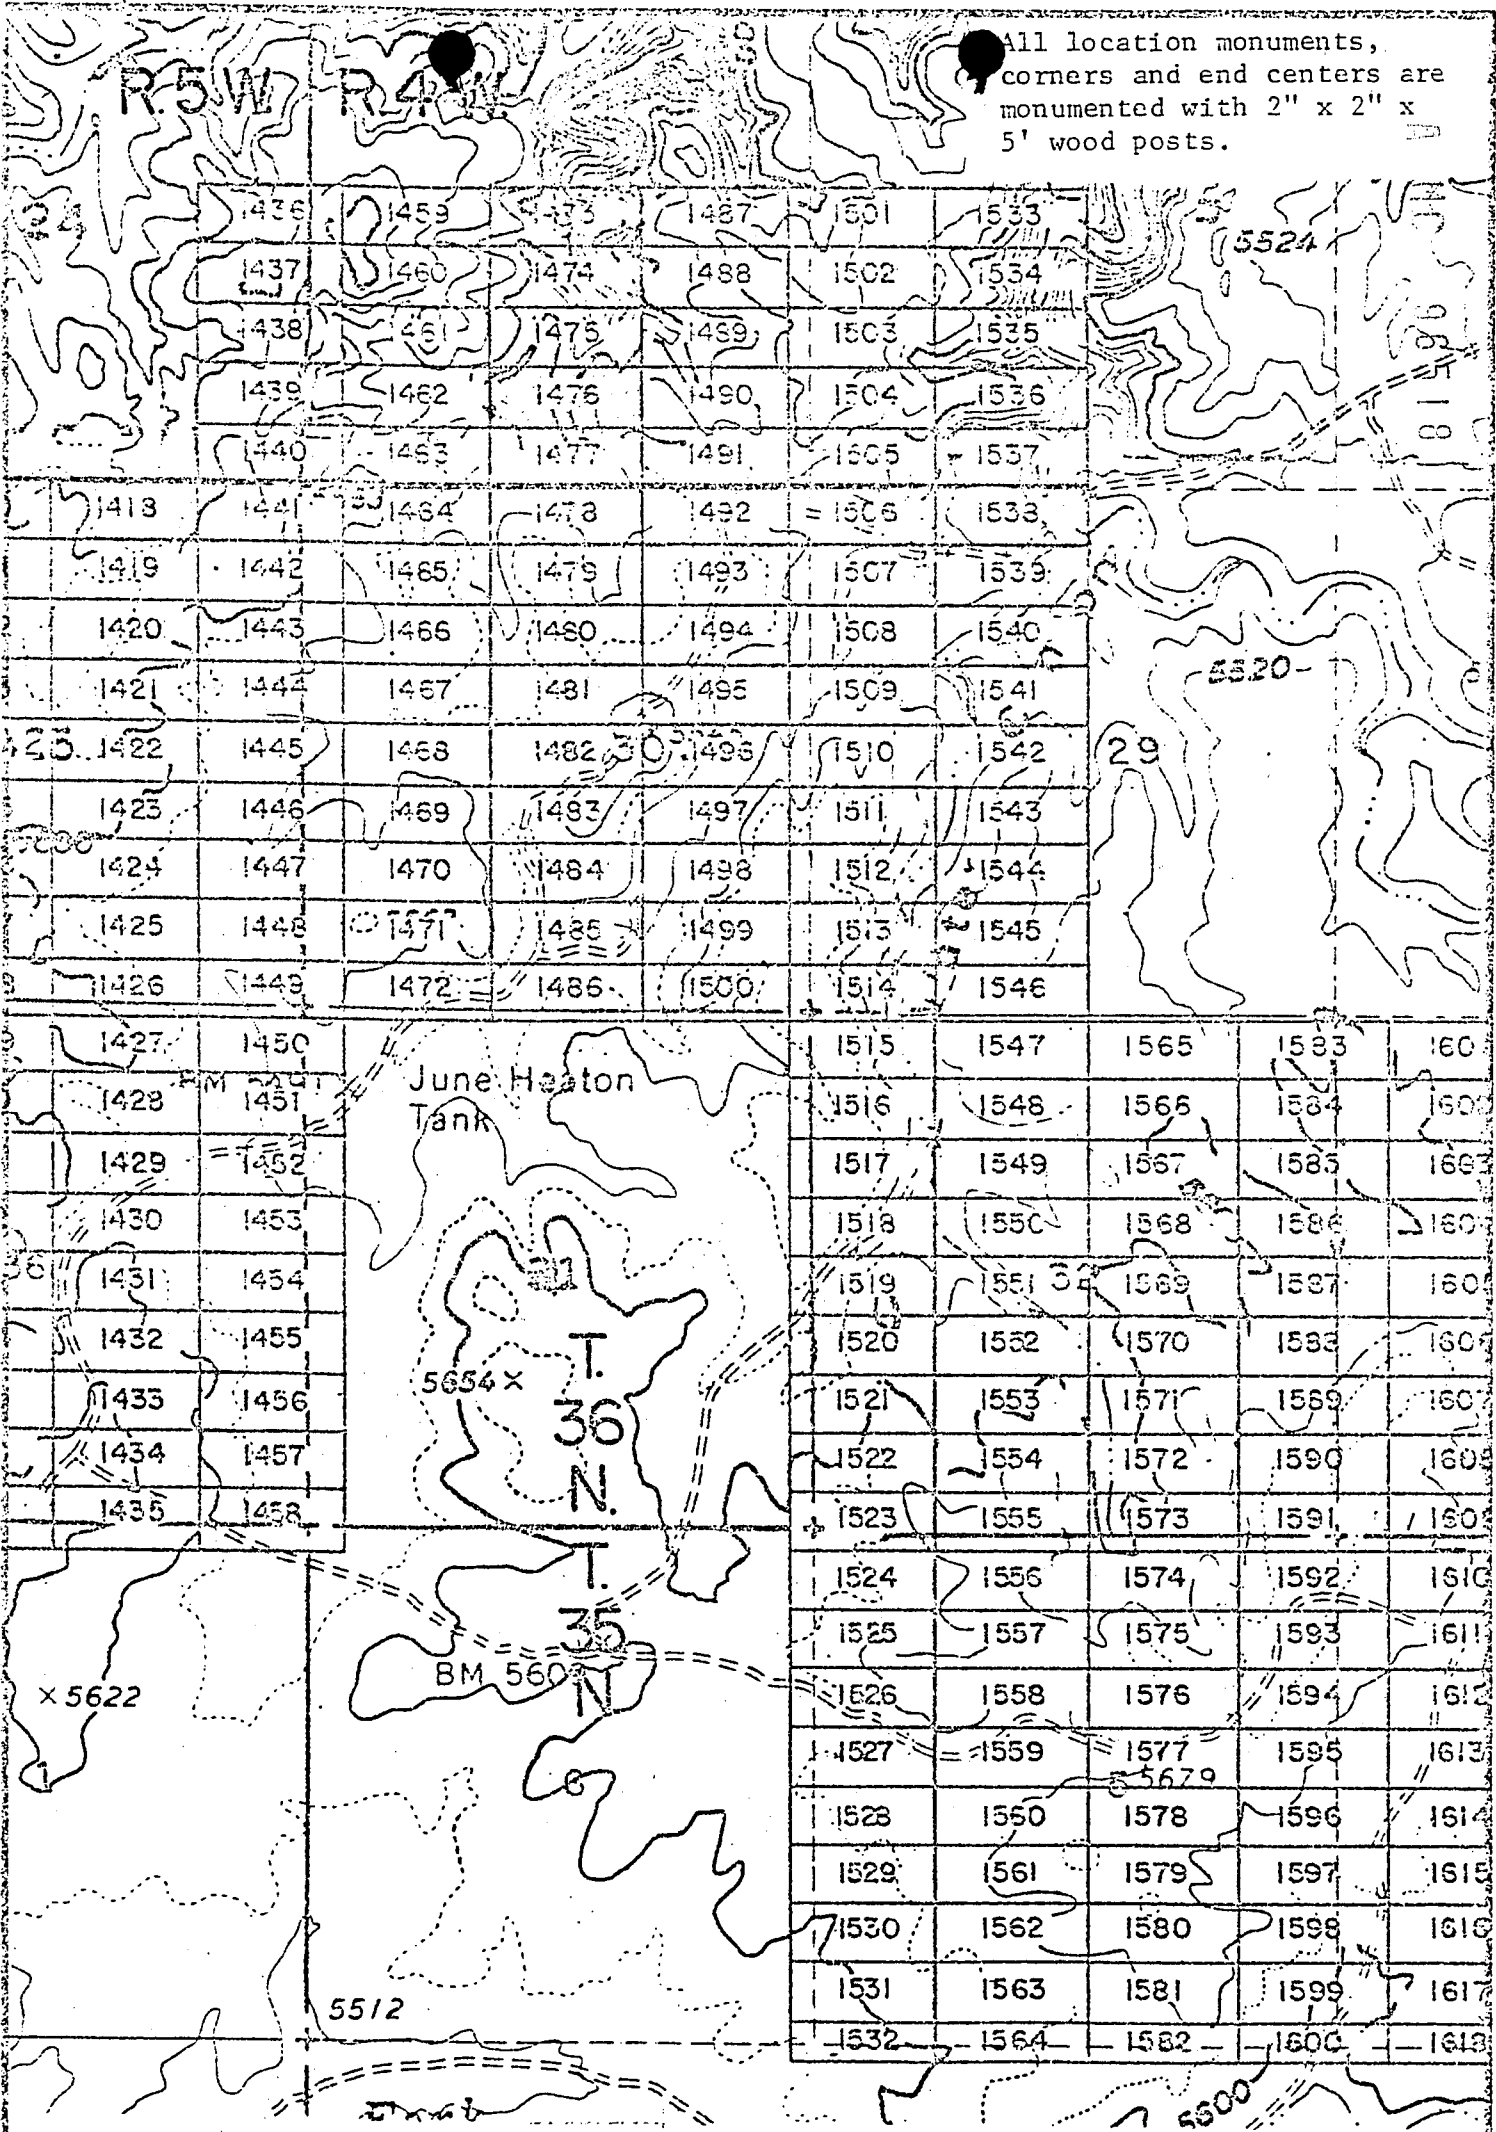 All location monuments,
corners and end centers are
monumented with 2" x 2" x
5' wood posts.
R.5W. R.4W.
24 1436 1459 1473 1487 1501 1533
5524
1437 1460 1474 1488 1502 1534
1438 1461 1475 1489 1503 1535
1439 1462 1476 1490 1504 1536
1440 1463 1477 1491 1505 1537
1418 1441 1464 1478 1492 1506 1538
1419 1442 1465 1479 1493 1507 1539
1420 1443 1466 1480 1494 1508 1540
1421 1444 1467 1481 1495 1509 1541
5520
1422 1445 1468 1482 30 1496 1510 1542 29
1423 1446 1469 1483 1497 1511 1543
1424 1447 1470 1484 1498 1512 1544
1425 1448 1471 1485 1499 1513 1545
1426 1449 1472 1486 1500 1514 1546
1427 1450 1515 1547 1565 1583 160
BM
June Heaton
Tank
1428 1451 1516 1548 1566 1584
1429 1452 1517 1549 1567 1585 1603
1430 1453 1518 1550 1568 1586 160
36 1431 1454 31 1519 1551 32 1569 1587 160
1432 1455 1520 1552 1570 1588 1606
T.
36
N.
5654
1433 1456 1521 1553 1571 1589 1607
1434 1457 1522 1554 1572 1590 1608
1435 1458 1523 1555 1573 1591 1609
T.
35
N
1524 1556 1574 1592 1610
1525 1557 1575 1593 1611
BM 560
×5622
1526 1558 1576 1594 1612
1527 1559 1577 1595 1613
1 6 5 5679
1528 1560 1578 1596 1614
1529 1561 1579 1597 1615
1530 1562 1580 1598 1616
1531 1563 1581 1599 1617
5512
1532 1564 1582 1600 1618
5600